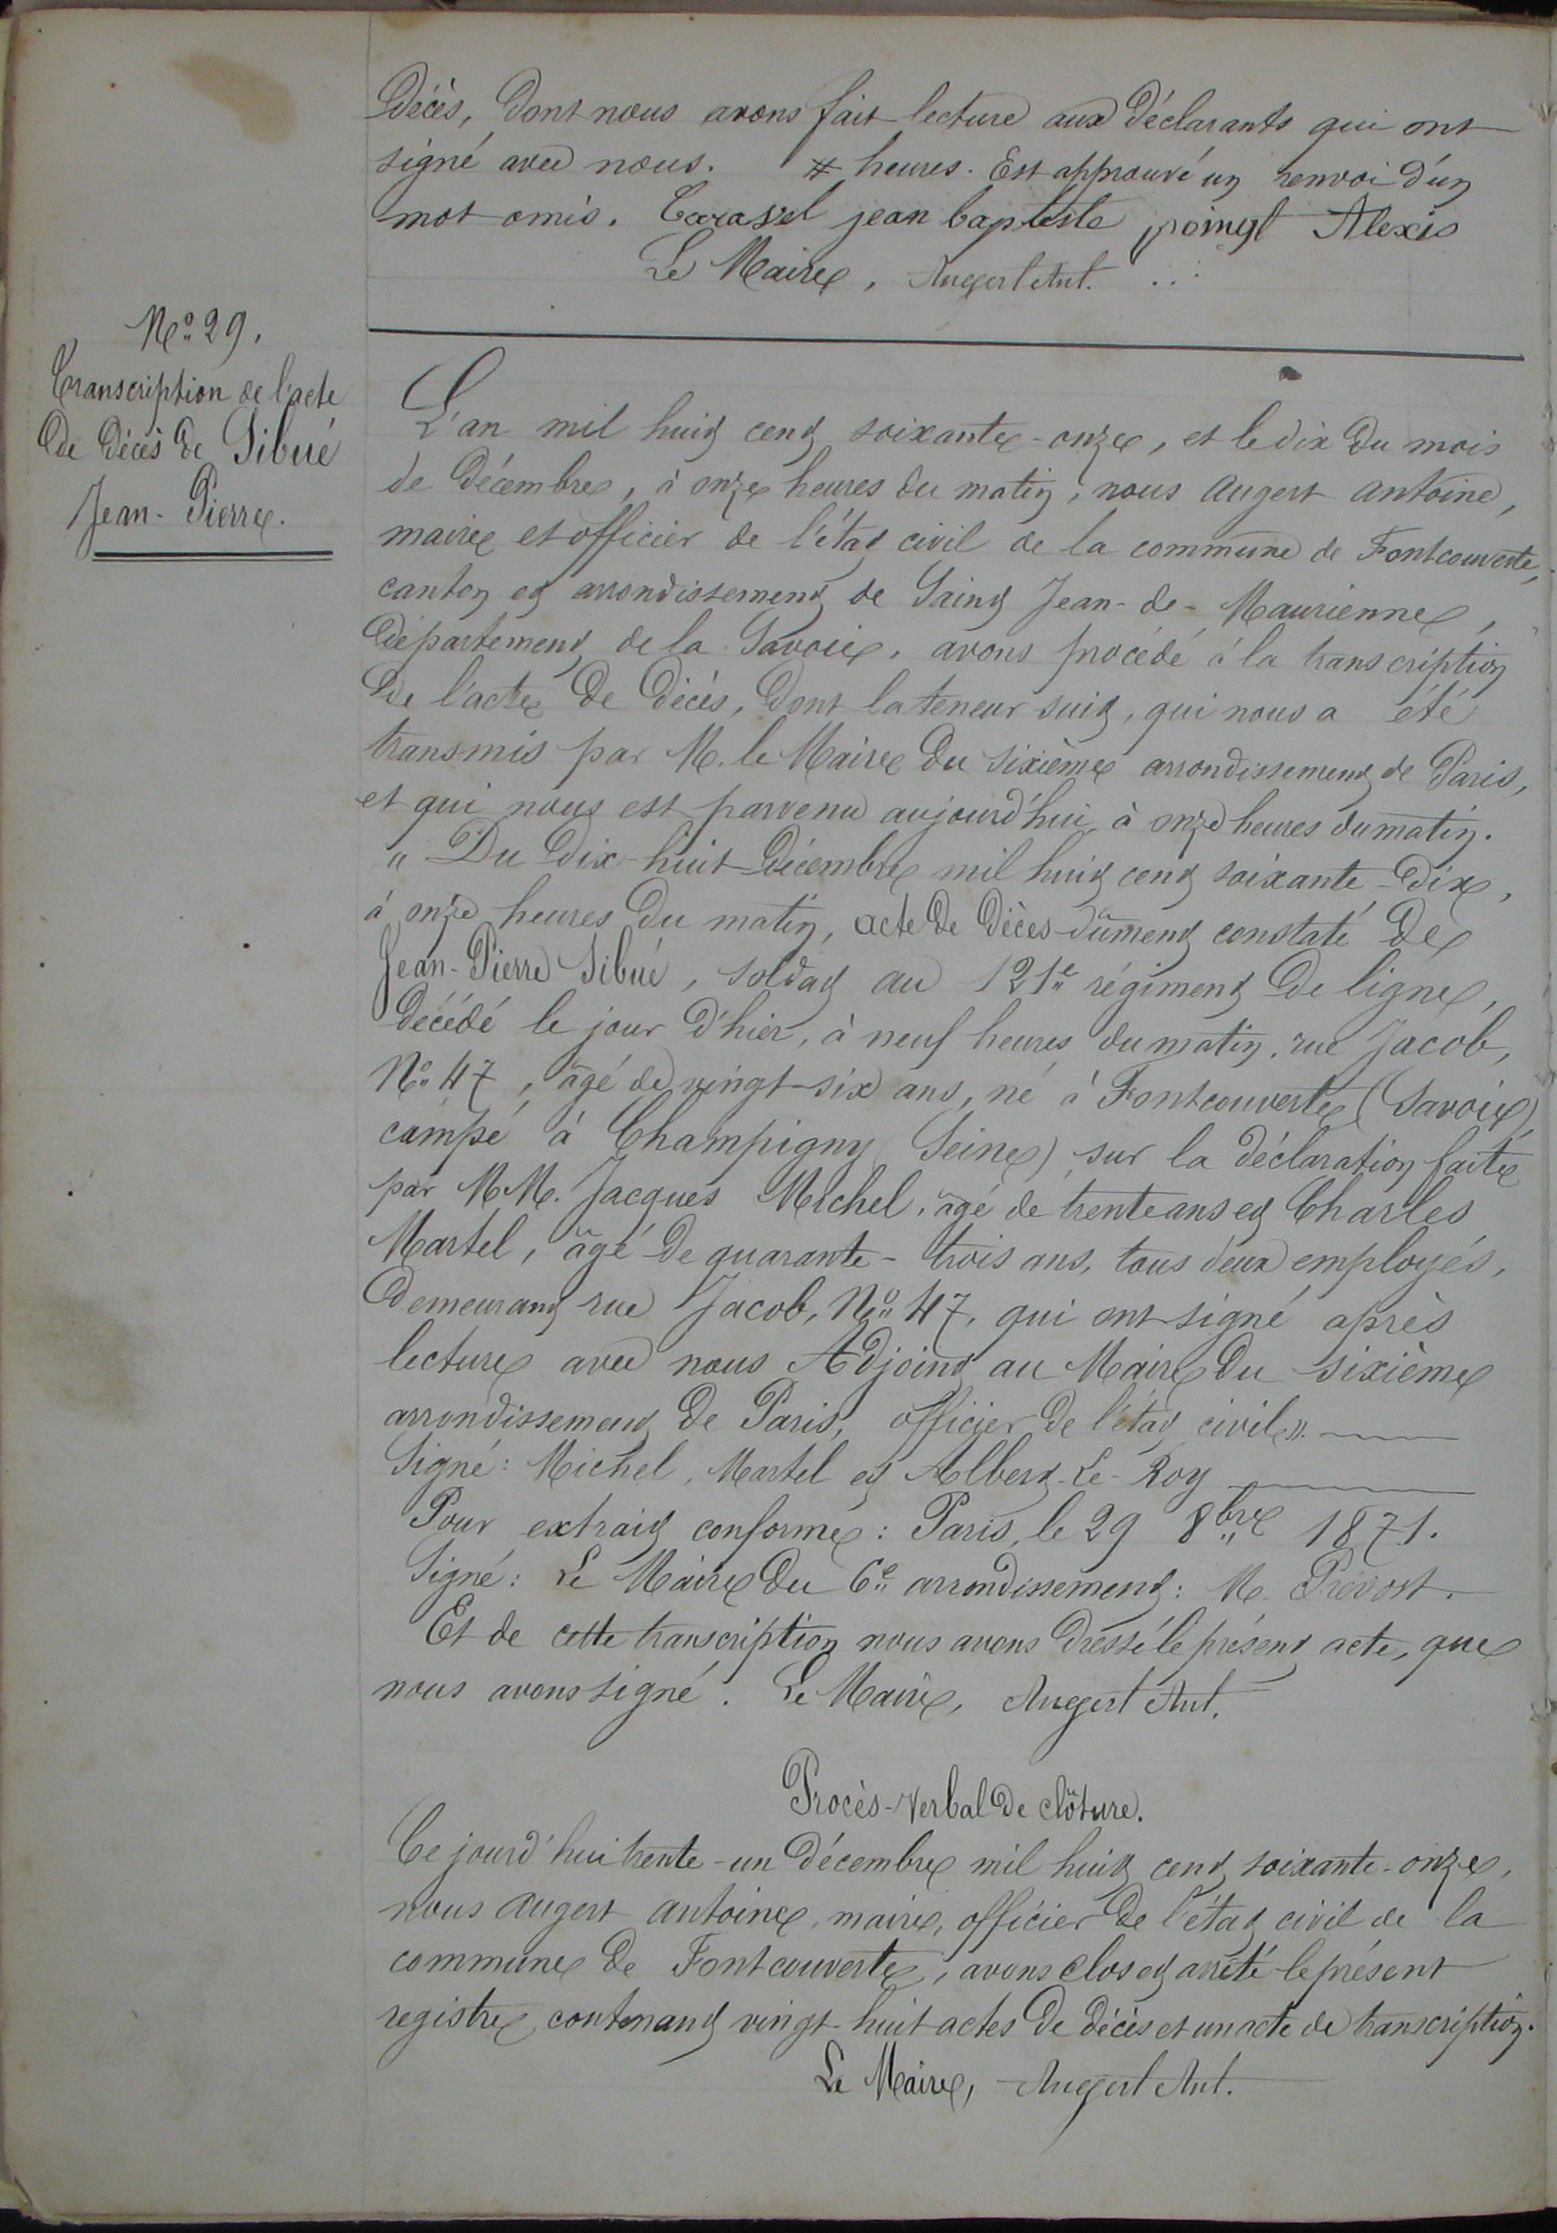 Décès, dont nous avons fait lecture aux déclarants qui ont
signé avec nous. # heures. Est approuvé un renvoi d'un
mot omis. jean baptiste Alexis
Le Maire, Augert Ant.
No 29.
Transcription de l'acte
de décès de Sibué
Jean-Pierre.
L'an mil huit cent soixante-onze, et le dix du mois
de Décembre, à onze heures du matin, nous Augert Antoine,
maire et officier de l'état civil de la commune de Fontcouverte,
canton et arrondissement de Saint Jean-de-Maurienne,
Département de la Savoie, avons procédé à la transcription
de l'acte de décès, dont la teneur suit, qui nous a été
transmis par M. le Maire du sixième arrondissement de Paris,
et qui nous est parvenu aujourd'hui à onze heures du matin.
" Du dix-huit Décembre mil huit cent soixante-dix,
à onze heures du matin, acte de décès dûment constaté de
Jean-Pierre Sibué, soldat au 121e régiment de ligne,
décédé le jour d'hier, à neuf heures du matin, rue Jacob,
No 47, âgé de vingt-six ans, né à Fontcouverte (Savoie),
campé à Champigny (Seine) sur la déclaration faite
par MM. Jacques Michel, âgé de trente ans et Charles
Martel, âgé de quarante-trois ans, tous deux employés,
demeurant rue Jacob, No 47, qui ont signé après
lecture avec nous Adjoint au Maire du sixième
arrondissement de Paris, officier de l'état civil ».
Signé: Michel, Martel et Albert-Le-Roy
Pour extrait conforme: Paris, le 29 8bre 1871.
Signé: Le Maire du 6e arrondissement: M. Prévost.
Et de cette transcription nous avons dressé le présent acte, que
nous avons signé. Le Maire, Augert Ant.
Procès-Verbal de clôture.
Ce jourd'hui trente-un décembre mil huit cent soixante-onze,
nous Augert Antoine, maire, officier de l'état civil de la
commune de Fontcouverte, avons clos et arrêté le présent
registre contenant vingt-huit actes de décès et un acte de transcription.
Le Maire, Augert Ant.